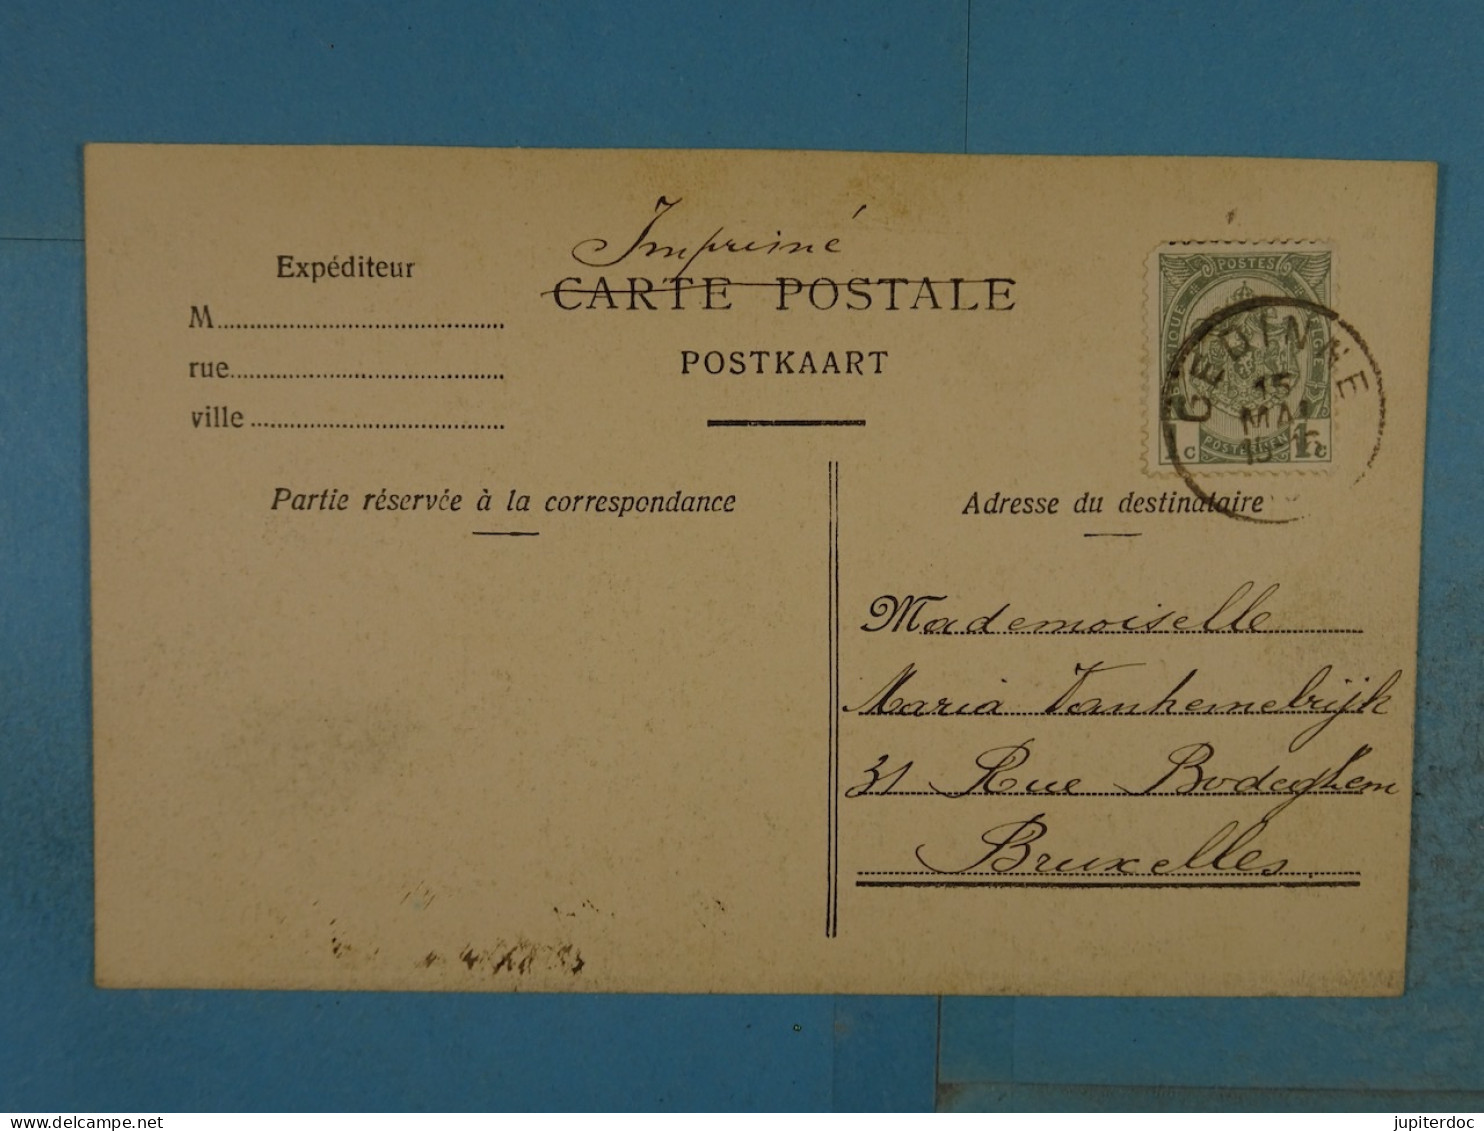 Imprimé
Expéditeur
CARTE POSTALE
M
POSTKAART
rue
ville
POSTES
POSTERIJEN
1 c
1 c
GEDINNE
15
MAI
Partie réservée à la correspondance
Adresse du destinataire
Mademoiselle
Maria Vanhemelrijk
31 Rue Bodeghem
Bruxelles
jupiterdoc